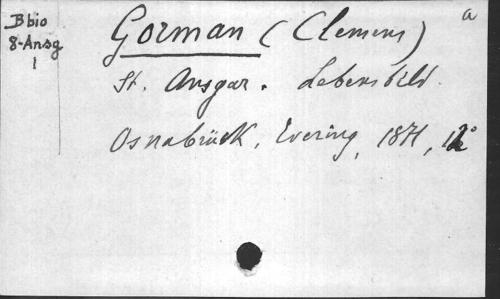 B bio
8-Ansg
1
a
Gorman (Clemens)
St. Ansgar. Lebensbild.
Osnabrück, Evering, 1871, 12°